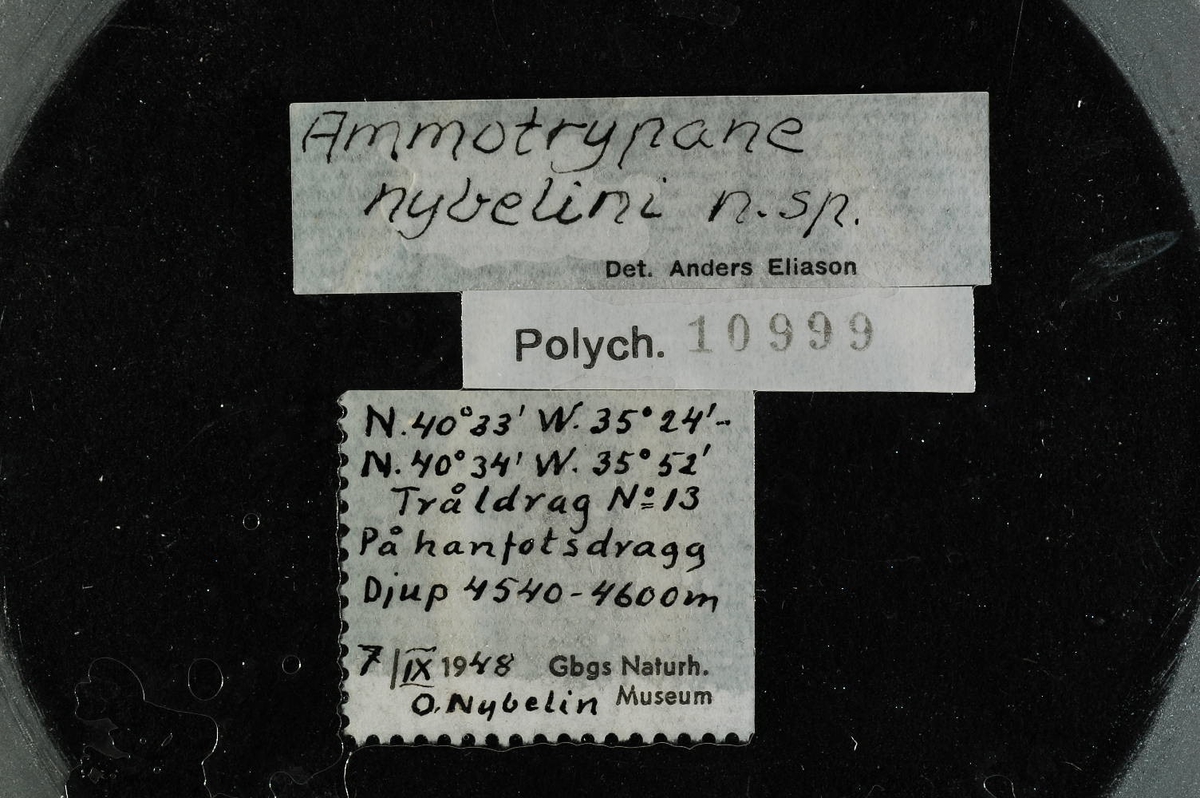 Ammotrypane
nybelini n.sp.
Det. Anders Eliason
Polych. 10999
N.40°33' W. 35°24'-
N.40°34' W. 35°52'
Tråldrag Nº 13
På hanfotsdragg
Djup 4540-4600m
7/IX 1948 Gbgs Naturh.
O.Nybelin Museum